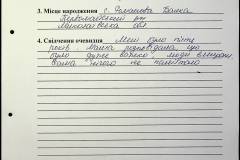 3. Місце народження с. Романова Балка
Первомайський рн
Миколаївська обл
4. Свідчення очевидця Мені було пять
років. Мама розповідала, що
було дуже важко, люди вмирали
Сама нічого не памятаю